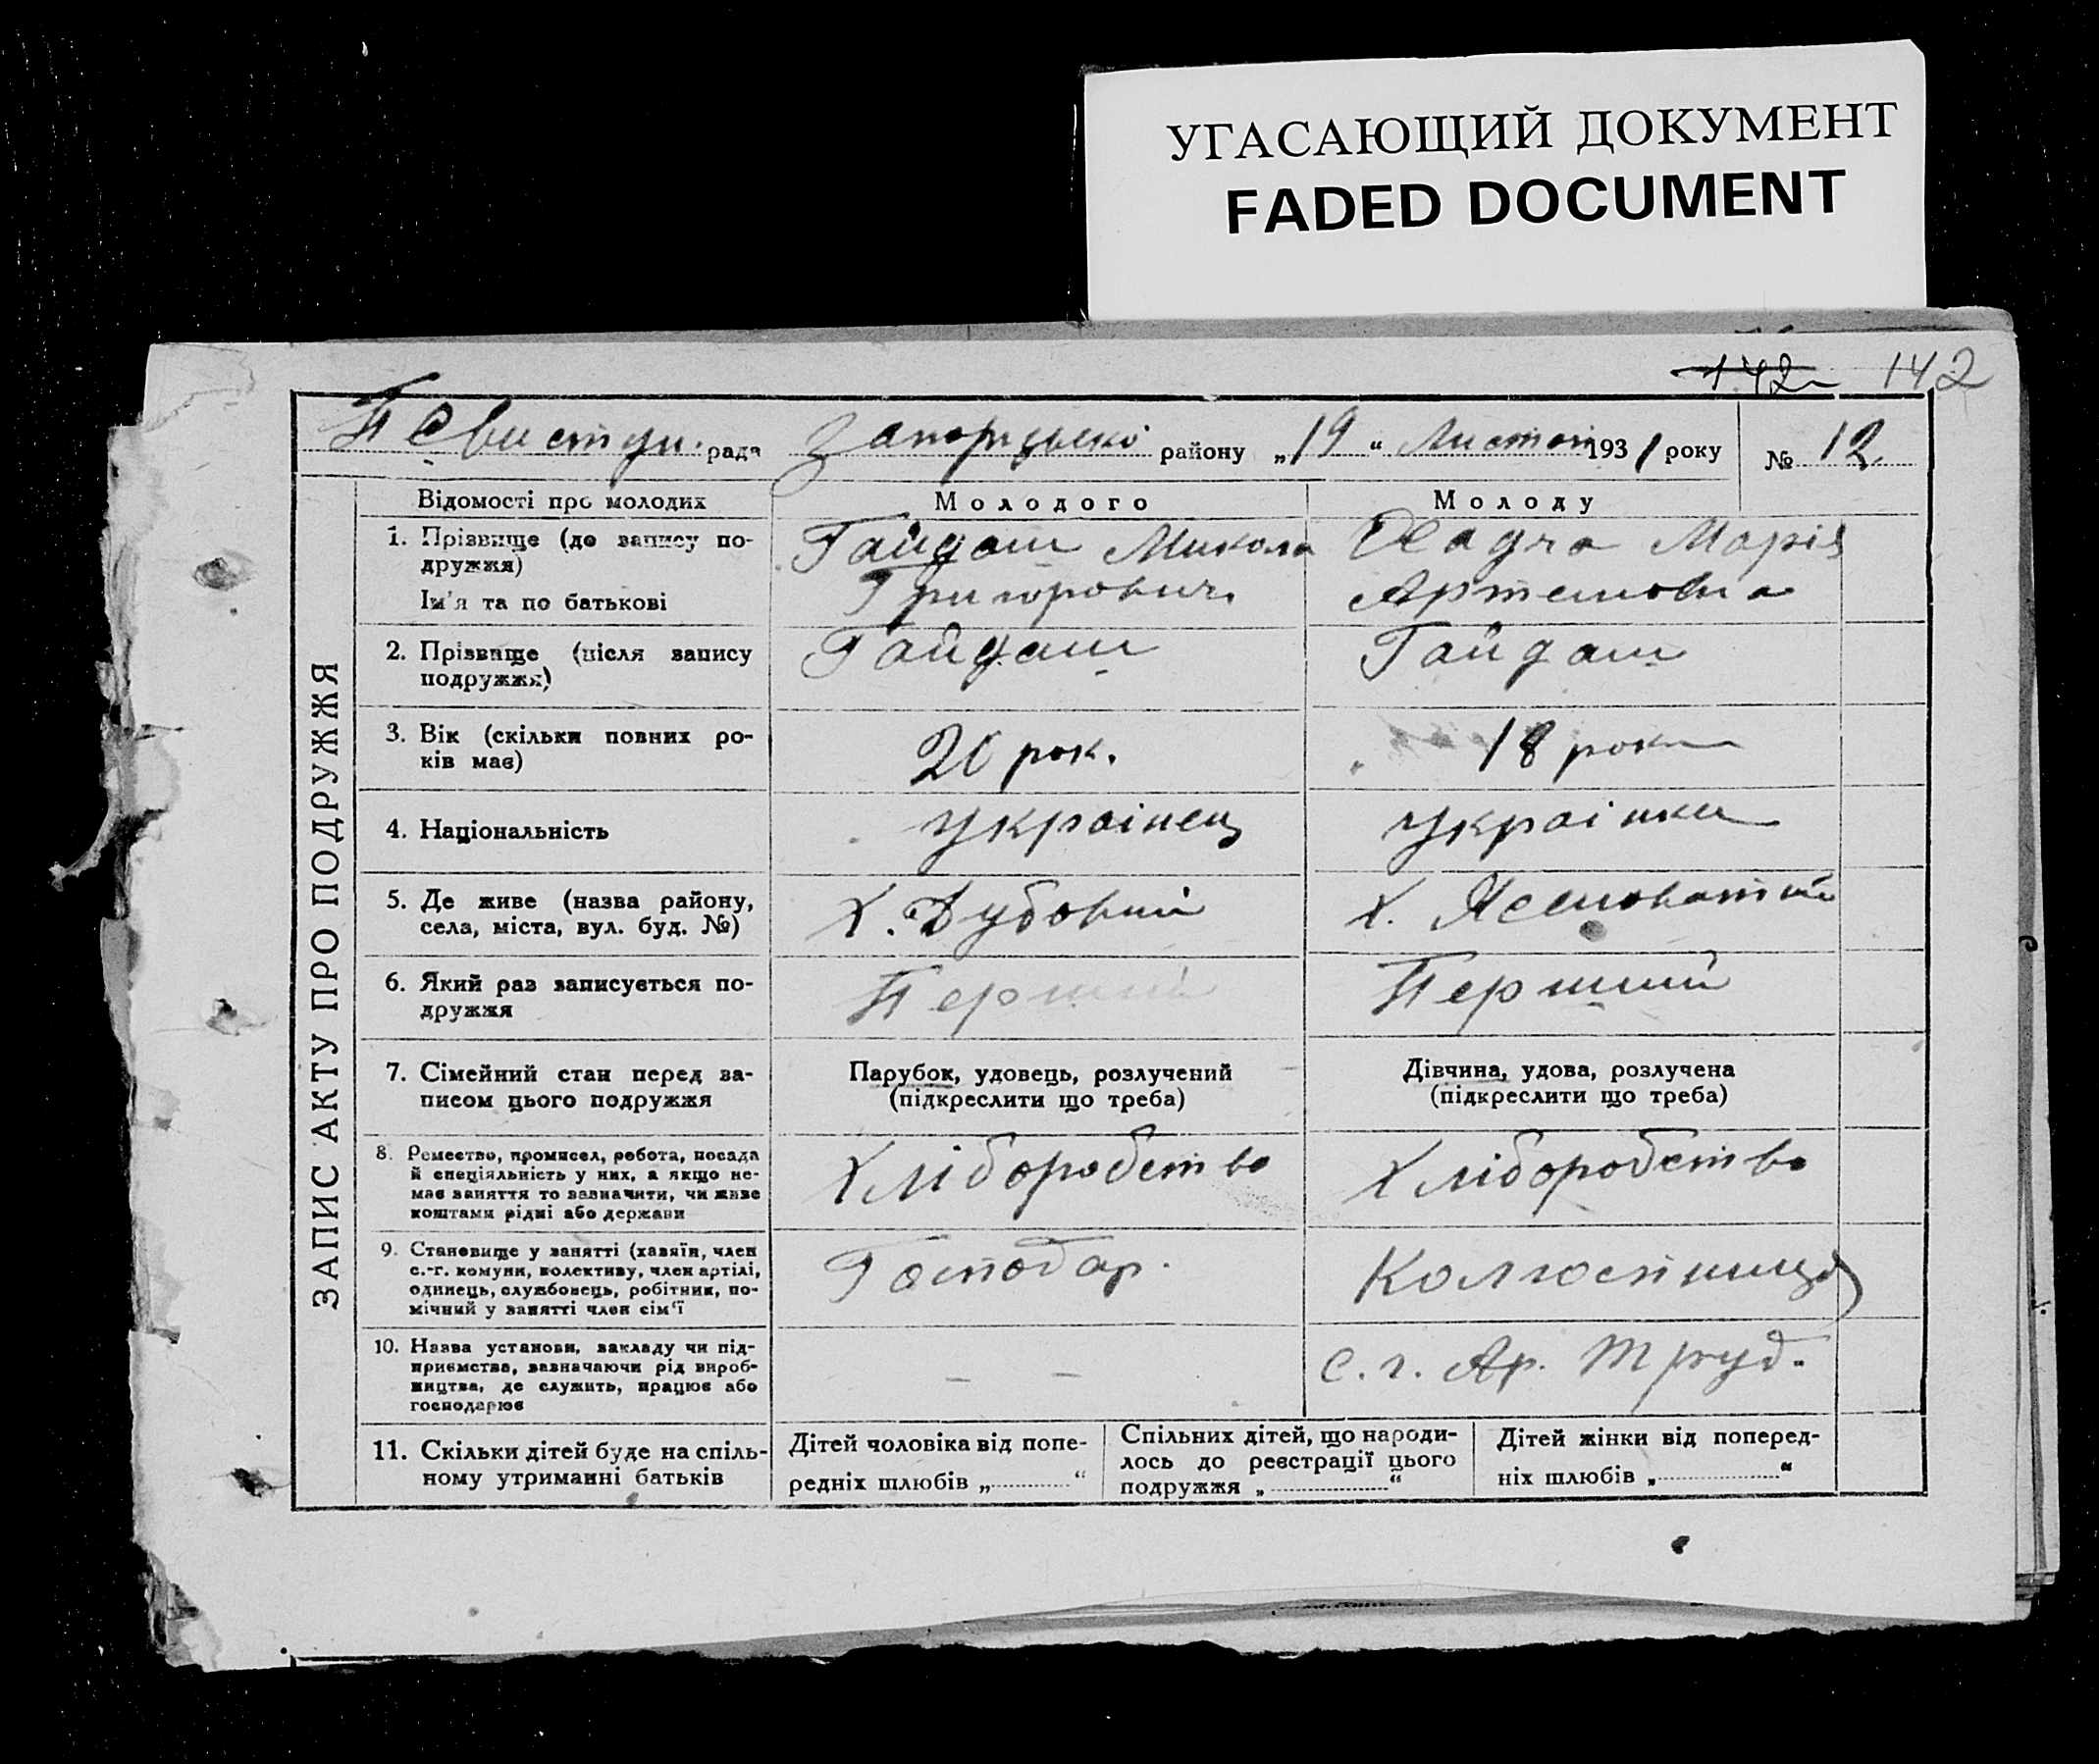 УГАСАЮЩИЙ ДОКУМЕНТ
FADED DOCUMENT
142 142
рада району „19“ 1931 року № 12
ЗАПИС АКТУ ПРО ПОДРУЖЖЯ
Відомості про молодих Молодого Молоду
1. Прізвище (до запису по- Гайдаш Микола Марія
дружжя)
Ім'я та по батькові Григорович Артемовна
2. Прізвище (після запису Гайдаш Гайдаш
подружжя)
3. Вік (скільки повних ро- 20 рок. 18 роки
ків має)
4. Національність Українец Українка
5. Де живе (назва району, Х. Дубовий х. Ясеноватий
села, міста, вул. буд. №)
6. Який раз записується по- Перший Перший
дружжя
7. Сімейний стан перед за- Парубок, удовець, розлучений Дівчина, удова, розлучена
писом цього подружжя (підкреслити що треба) (підкреслити що треба)
8. Ремество, промисел, робота, посада Хліборобство Хліборобство
й спеціяльність у них, а якщо не-
має заняття то зазначити, чи живе
коштами рідні або держави
9. Становище у занятті (хазяїн, член Господар. Колгоспниця
с.-г. комуни, колективу, член артілі,
одинець, службовець, робітник, по-
мічний у занятті член сім'ї
10. Назва установи, закладу чи під- – – С. г. Ар. Труд.
приємства, зазначаючи рід вироб-
ництва, де служить, працює або
господарює
11. Скільки дітей буде на спіль- Дітей чоловіка від попе- Спільних дітей, що народи- Дітей жінки від поперед-
ному утриманні батьків редніх шлюбів „ “ лось до реєстрації цього ніх шлюбів „ “
подружжя „ “